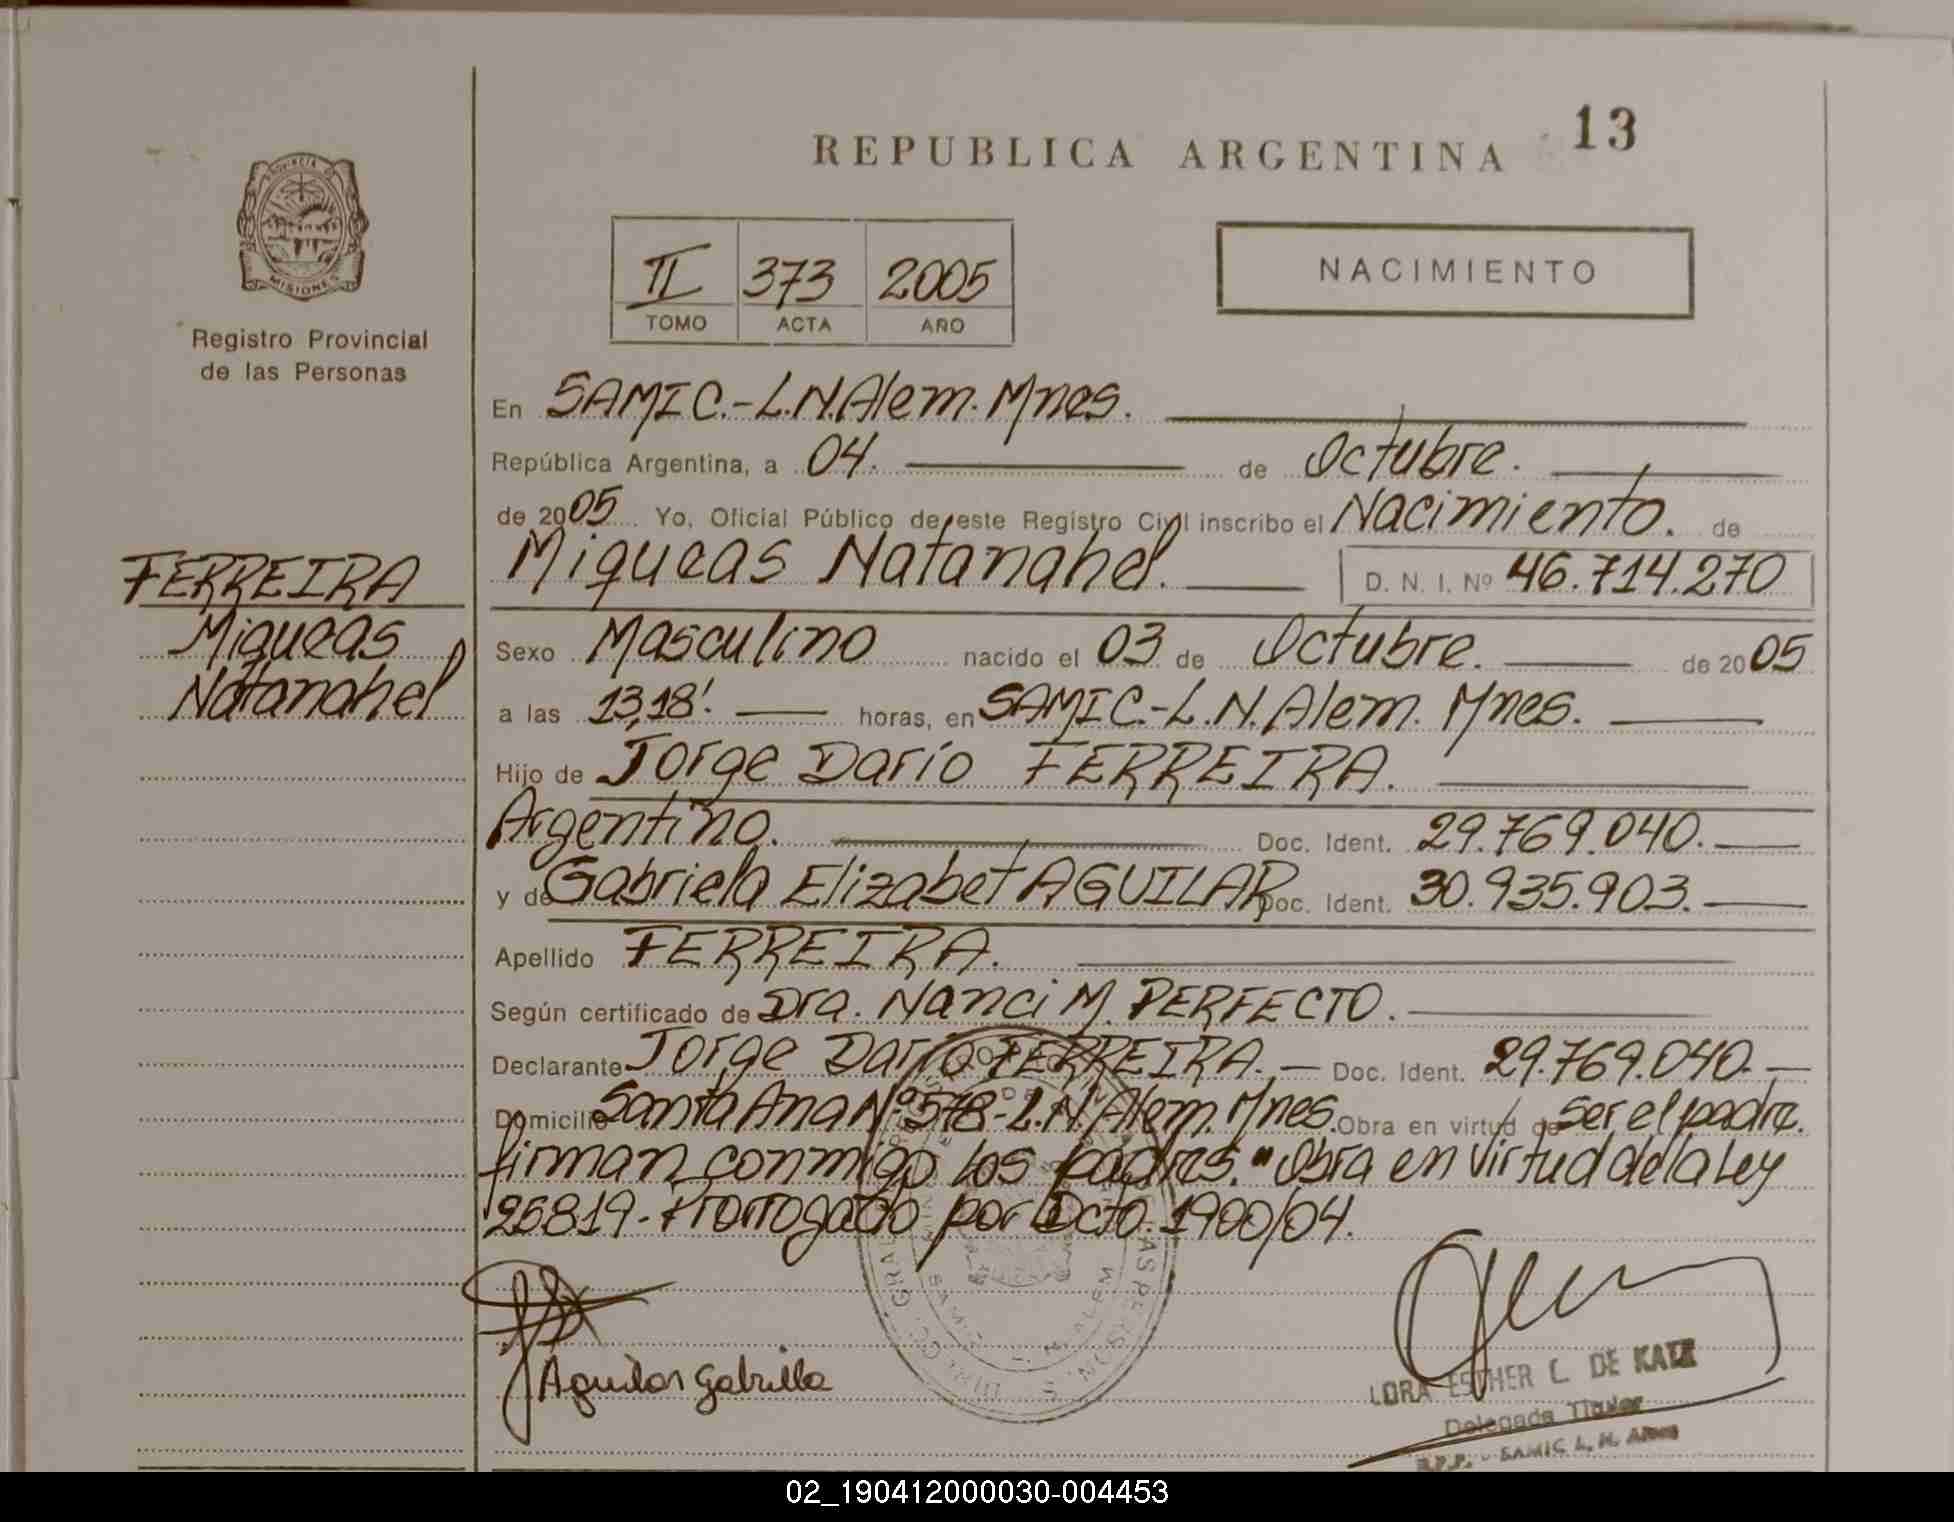 REPUBLICA ARGENTINA 13
PROVINCIA D
MISIONES
Registro Provincial
de las Personas
II 373 2005
TOMO ACTA AÑO
NACIMIENTO
En SAMIC.-L.N.Alem. Mnes.
República Argentina, a 04. de Octubre.
de 2005 Yo, Oficial Público de este Registro Civil inscribo el Nacimiento. de
Miqueas Natanahel. D. N. I. Nº 46.714.270
FERREIRA
Miqueas
Natanahel
Sexo Masculino nacido el 03 de Octubre. de 2005
a las 13,18'. horas, en SAMIC.-L.N.Alem. Mnes.
Hijo de Jorge Darío FERREIRA.
Argentino. Doc. Ident. 29.769.040.
y de Gabriela Elizabet AGUILAR Doc. Ident. 30.935.903.
Apellido FERREIRA.
Según certificado de Dra. Nanci M. PERFECTO.
Declarante Jorge Darío FERREIRA.- Doc. Ident. 29.769.040.-
Domicilio Santa Ana Nº 578-L.N.Alem. Mnes. Obra en virtud de ser el padre.
firman conmigo los padres. "Obra en virtud de la Ley
25819- Prorrogado por Dcto. 1900/04.
Aguilar Gabriela
LORA ESTHER L. DE KATZ
Delegada Titular
R.P.P. - SAMIC L. N. Alem
02_190412000030-004453